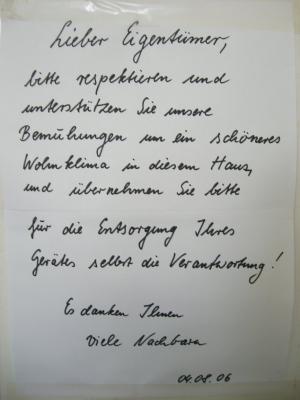 Lieber Eigentümer,
bitte respektieren und
unterstützen Sie unsere
Bemühungen um ein schöneres
Wohnklima in diesem Haus,
und übernehmen Sie bitte
für die Entsorgung Ihres
Gerätes selbst die Verantwortung!
Es danken Ihnen
Viele Nachbarn
04.08.06